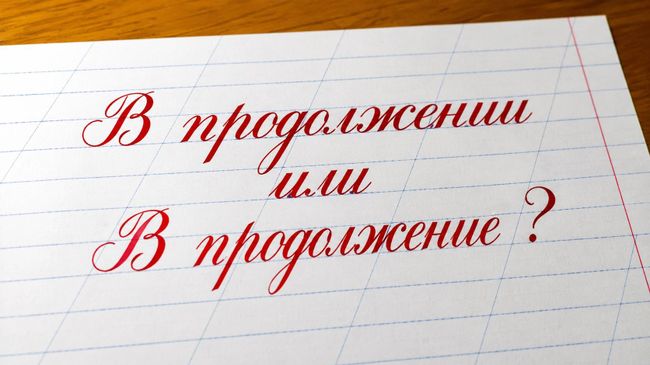 В продолжении
или
В продолжение ?